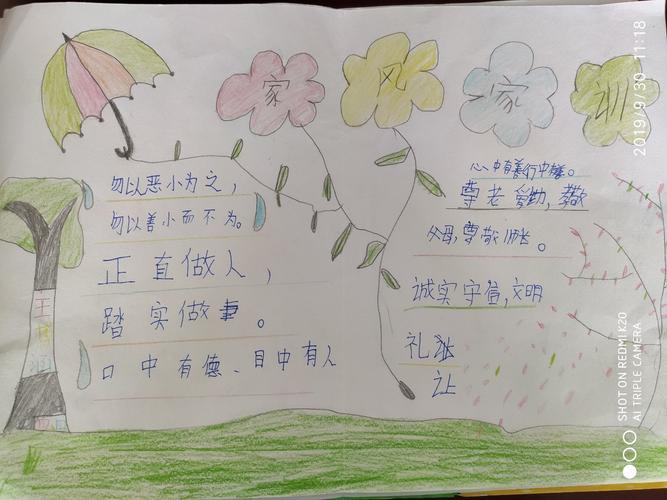 家风家训
勿以恶小为之，
勿以善小而不为。
正直做人，
踏实做事。
口中有德、目中有人
心中有善行中善。
尊老爱幼，孝敬
父母，尊敬师长。
诚实守信，文明
礼让
2019/9/30 11:18
SHOT ON REDMI K20
AI TRIPLE CAMERA